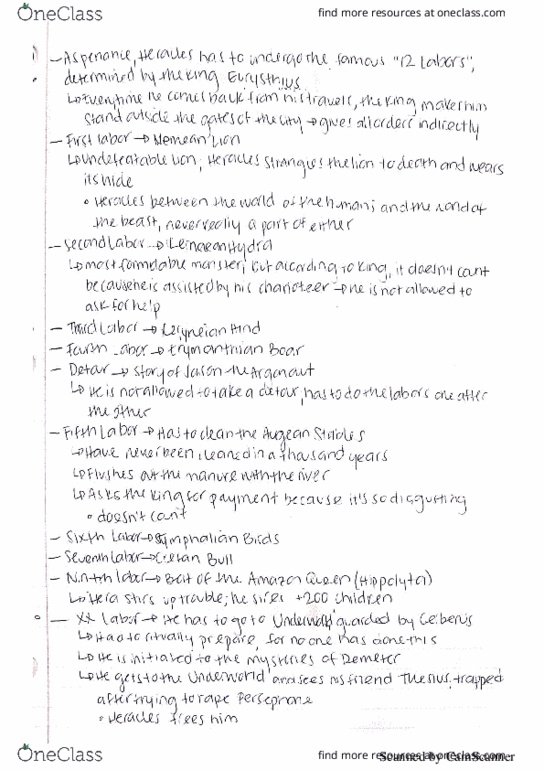 OneClass
find more resources at oneclass.com
- As penance, Heracles has to undergo the famous "12 Labors",
determined by the King Eurysthius
↳ Everytime he comes back from his travels, the King makes him
stand outside the gates of the city → gives all orders indirectly
- First labor → Nemean Lion
↳ Undefeatable lion; Heracles strangles the lion to death and wears
its hide
• Heracles between the world of the humans and the world of
the beast, never really a part of either
- Second Labor → Lernaean Hydra
↳ most formidable monster, but according to King, it doesn't count
because he is assisted by his charioteer → he is not allowed to
ask for help
- Third Labor → Ceryneian Hind
- Fourth Labor → Erymanthian Boar
- Detour → Story of Jason the Argonaut
↳ He is not allowed to take a detour, has to do the labors one after
the other
- Fifth Labor → Has to clean the Augean Stables
↳ Have never been cleaned in a thousand years
↳ Flushes out the manure with the river
↳ Asks the King for payment because it's so disgusting
• doesn't count
- Sixth Labor → Stymphalian Birds
- Seventh Labor → Cretan Bull
- Ninth labor → Belt of the Amazon Queen (Hippolyta)
↳ Hera stirs up trouble; he sires +200 children
- XX Labor → He has to go to Underworld guarded by Cerberus
↳ Had to ritually prepare, for no one has done this
↳ He is initiated to the mysteries of Demeter
↳ He gets to the Underworld and sees his friend Thesius, trapped
after trying to rape Persephone
• Heracles frees him
OneClass
find more resources at oneclass.com
Scanned by CamScanner